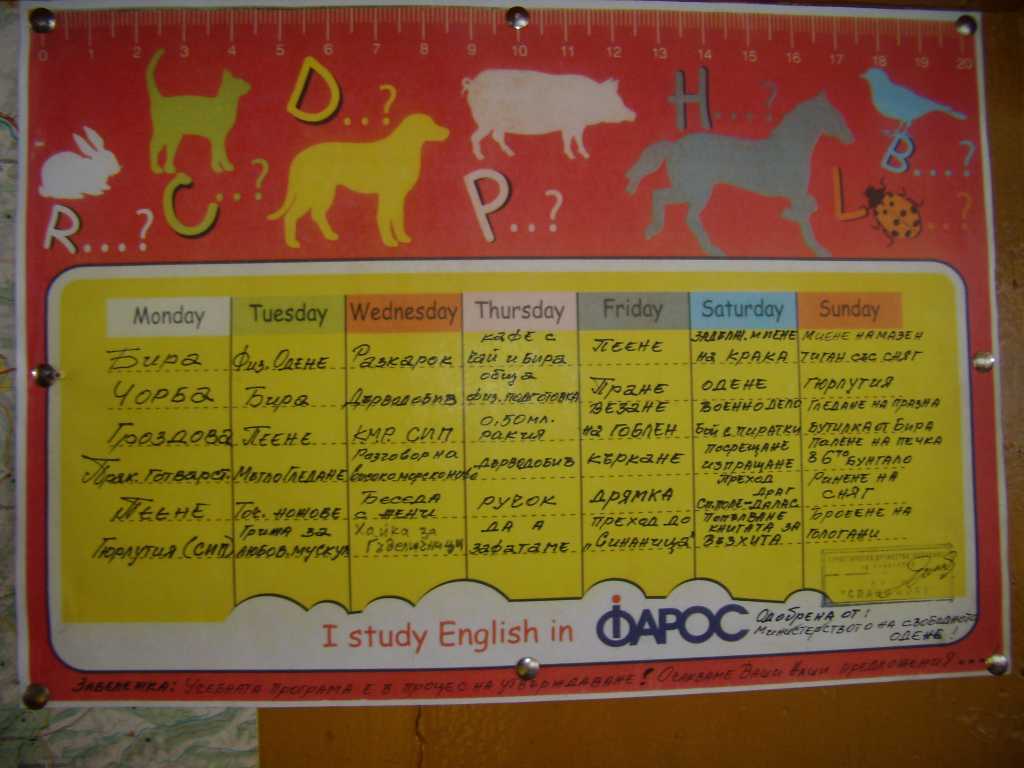 0 1 2 3 4 5 6 7 8 9 10 11 12 13 14 15 16 17 18 19 20
D...?
H...?
B...?
C...?
P...?
L...?
R...?
Monday Tuesday Wednesday Thursday Friday Saturday Sunday
Бира
Чорба
Гроздова
Прак. готварст.
Пеене
Гюрлутия (СИП)
Физ. Одене
Бира
Пеене
Мотло Гледане
Точ. ножове
Грижа за
любов. мускул
Разкарок
Дърводобив
КМР СИП
Разговор на
високоморсконово
Беседа
с пенчи
Хайка за
Гъделичници
кафе с
чай и бира
обща
физ. подготовка
0,50мл.
ракия
дърводобив
ручок
да а
зафатаме
Пеене
Пране
Везане
на гоблен
къркане
дрямка
преход до
"Синаница"
на крака
одене
военно дело
Бой с пирати
посрещане
изпращане
преход
Драг
Стоте-далас
попълване
книгата за
възхита
Миене на мазен
тиган със сняг
гюрлутия
Гледане на празна
бутилка от бира
Палене на печка
в 6то бунгало
Ринене на
сняг
Броене на
гологани
I study English in ФАРОС
Одобрена от:
Министерството на свободното
одене!
Забележка: Учебната програма е в процес на утвърждаване! Очакваме Ваши ваши предложения...